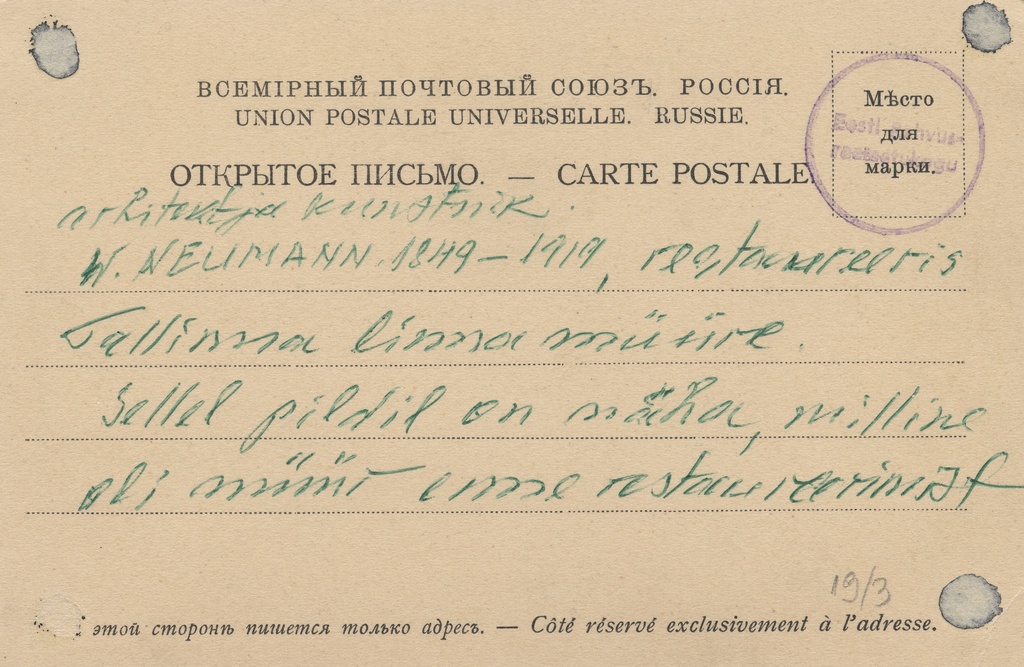 ВСЕМІРНЫЙ ПОЧТОВЫЙ СОЮЗЪ. РОССІЯ.
UNION POSTALE UNIVERSELLE. RUSSIE.
Мѣсто
для
марки.
Eesti Rahvus-
raamatukogu
ОТКРЫТОЕ ПИСЬМО. — CARTE POSTALE.
arhitekt ja kunstnik.
W. NEUMANN. 1849 – 1919, restaureeris
Tallinna linna müüre.
Sellel pildil on näha, milline
oli müür enne restaureerimist
19/3
этой сторонѣ пишется только адресъ. — Côté réservé exclusivement à l'adresse.